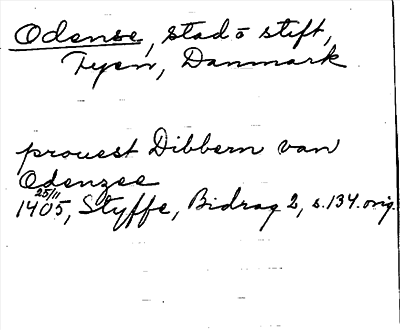 Odense, stad o stift,
Fyen, Danmark
prouest Dibbern van
Odenzee
25/11
1405, Styffe, Bidrag 2, s.134.orig.